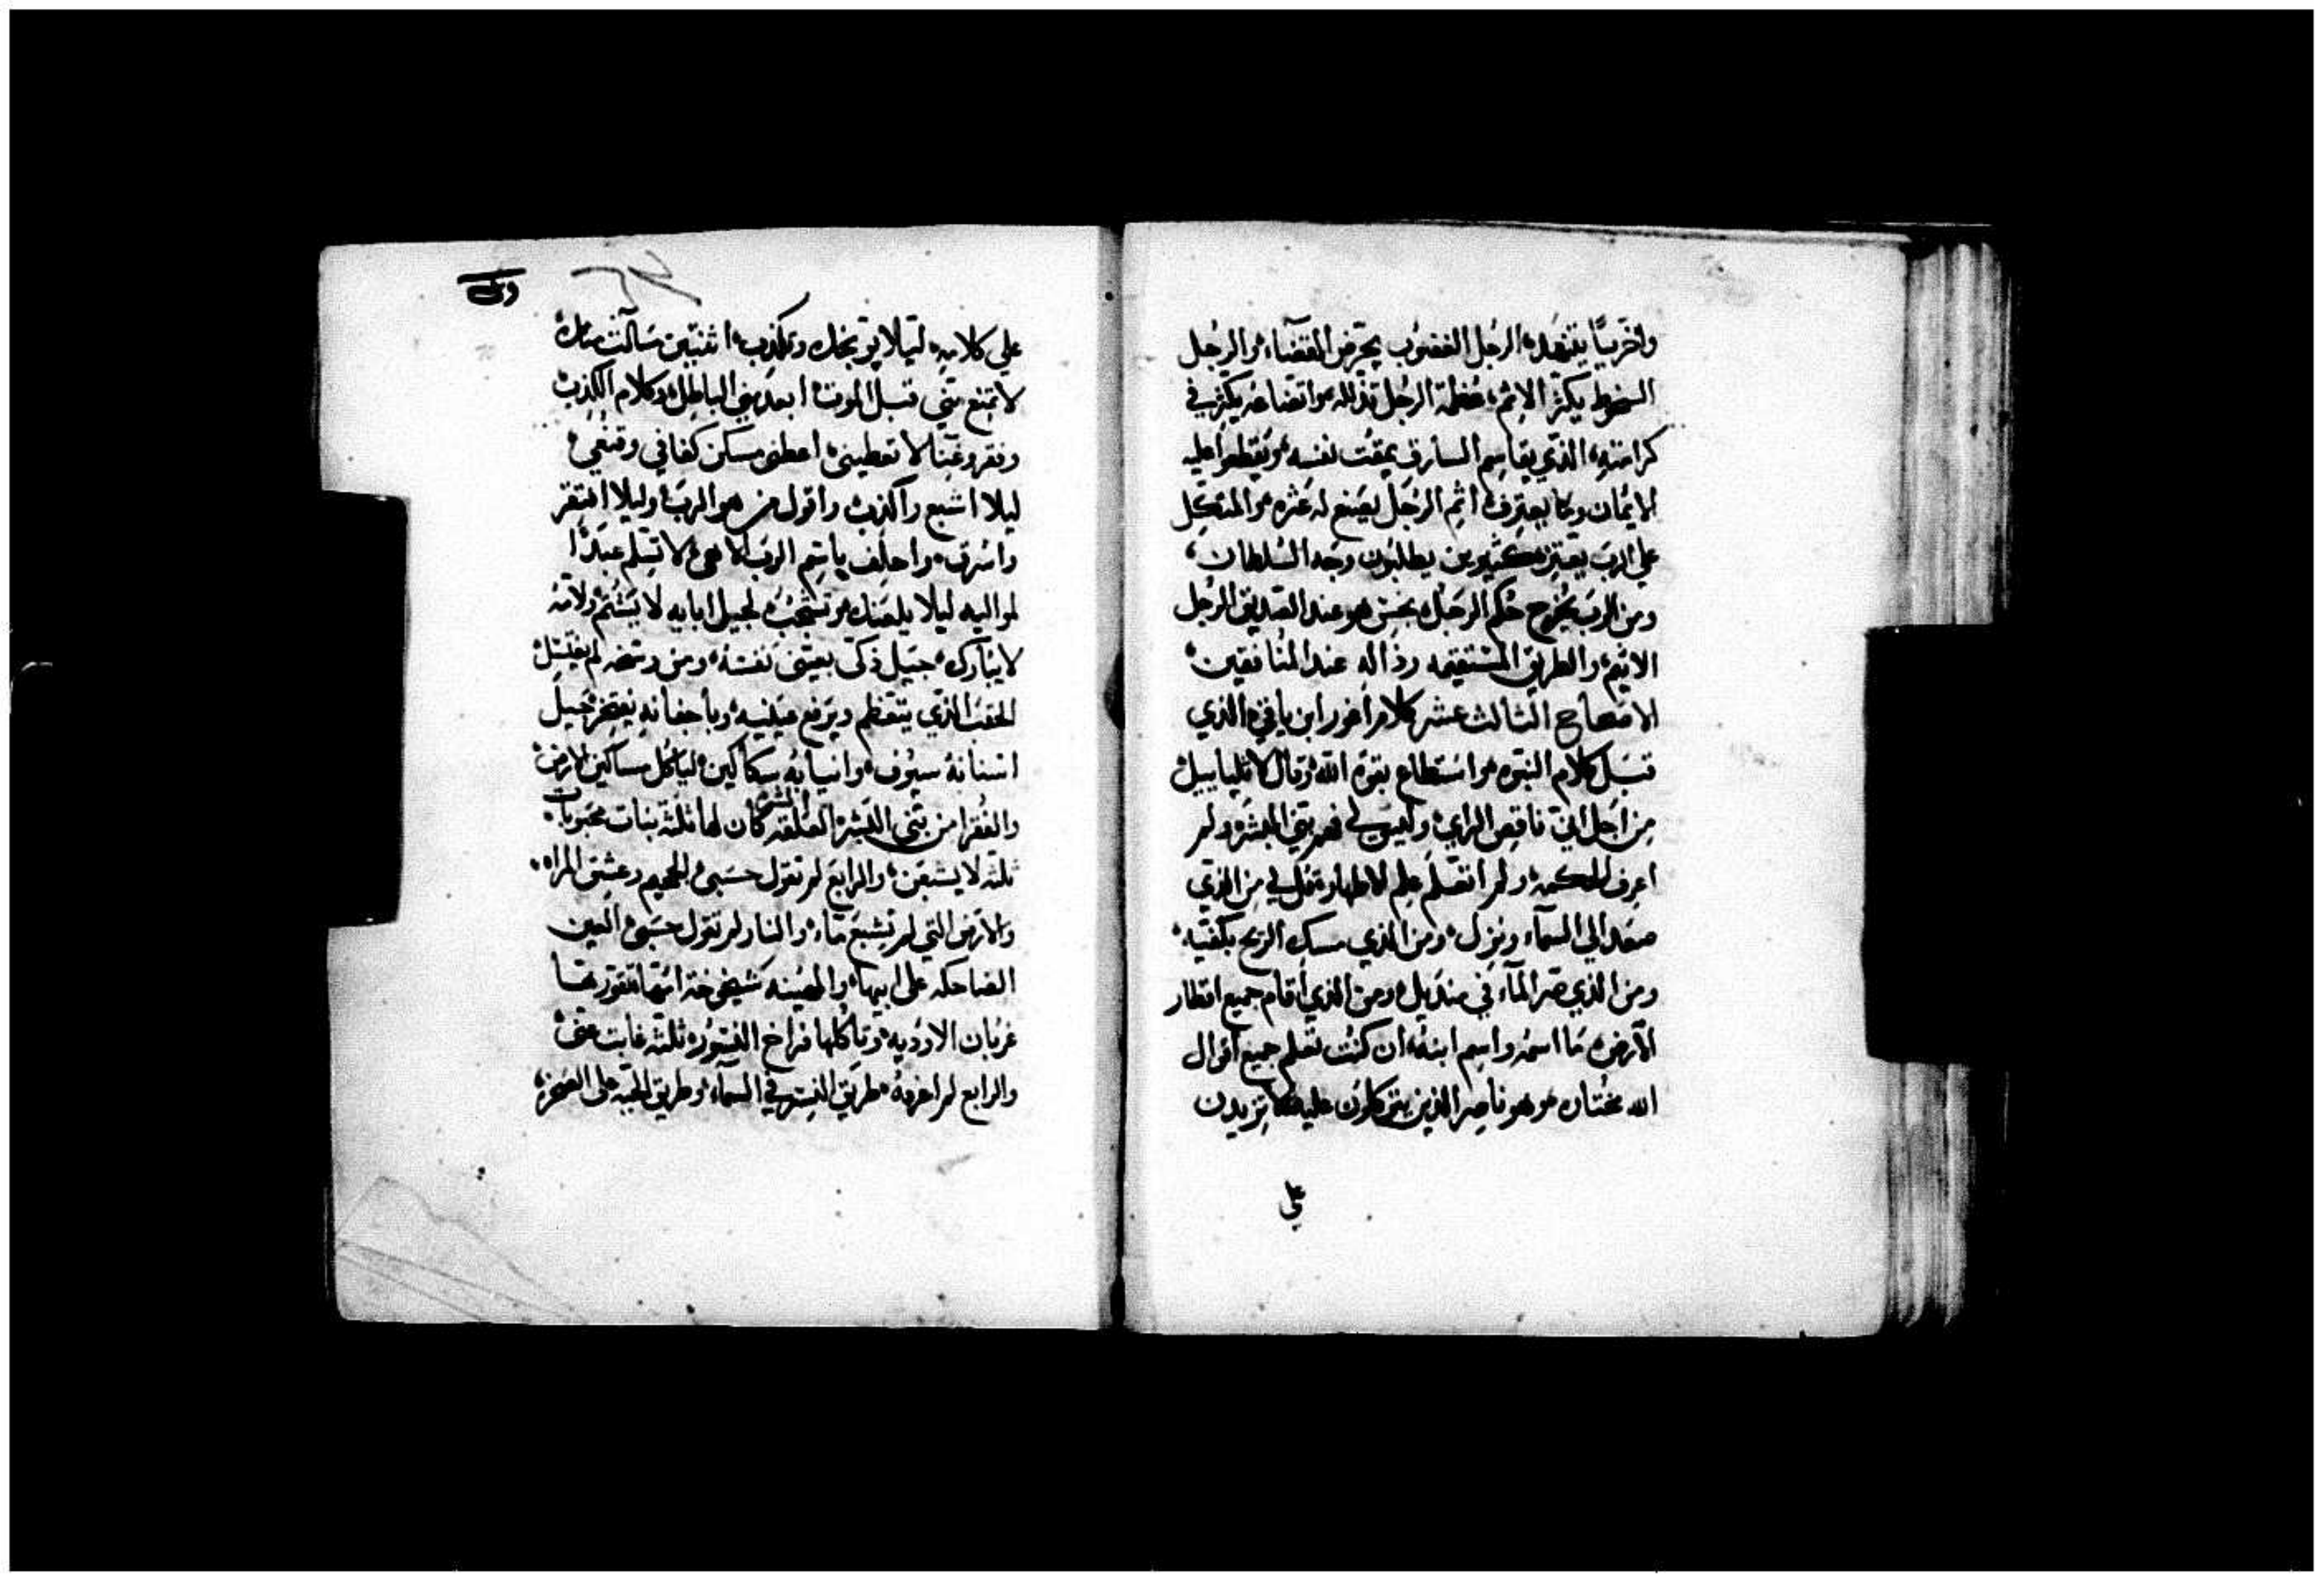 واخريًا يتنهد الرجل الغضوب يحرض القضاء والرجل
السخوط يكثر الاثم عظمة الرجل تذلله واتضاعه يكثر في
كرامته الذي يقاسم السارق يمقت نفسه ويقطعوا عليه
لايمان وما يعترف اثم الرجل يصنع له عثره والمتكل
علي الرب يعتز كثيرين يطلبون وجه السلطان
ومن الرب يخرج حكم الرجل نجس هو عند الصديق الرجل
الاثيم والطريق المستقيمه رذاله عند المنافقين
الاصحاح الثالث عشر كلام اخور ابن ياقي الذي
قبل كلام النبوه واستطاع بقوة الله وقال لاتلياييل
من اجل اني ناقص الراي وليس لي فهم بني البشر ولم
اعرف الحكمه ولم اتعلم علم الاطهار قل لي من الذي
صعد الي السمآء ونزل ومن الذي مسك الريح بكفيه
ومن الذي صر المآء في منديل ومن الذي اقام جميع اقطار
الارض ما اسمه واسم ابنه ان كنت تعلم جميع اقوال
الله مختاره وهو ناصر الذين يتوكلون عليه لا تزيدن
علي
علي كلامه ليلا يوبخك وتكذب اثنتين سالت منك
لا تمنع مني قبل الموت ابعد مني الباطل وكلام الكذب
وفقر وغنا لا تعطيني اعطني مسكن كفافي وقنعي
ليلا اشبع واكذب واقول من هو الرب وليلا افتقر
واسرق واحلف باسم الرب الاهي لا تسلم عبدًا
لمواليه ليلا يلعنك وتشجب لجيل ابايه لا يشتم ولامه
لا يبارك جيل زكي بعيني نفسه ومن وسخه لم يغتسل
الحقب الذي يتعظم ويرفع عينيه وباجفانه يفتخر جيل
اسنانه سيوف وانيابه سكاكين لياكل مساكين الارض
والفقرا من بني البشر العلقه كان لها ثلثة بنات محبوبات
ثلثه لا يشبعن والرابع لم تقول حسبي الجحيم وعشق المراه
والارض التي لم تشبع مآء والنار لم تقول حسبي العين
الضاحكه علي ابيها والمهينه شيخوخة امها تنقورها
غربان الاوديه وتاكلها فراخ النسور ثلثه غابت عني
والرابع لم اعرفه طريق النسر في السمآء وطريق الحيه علي الصخره